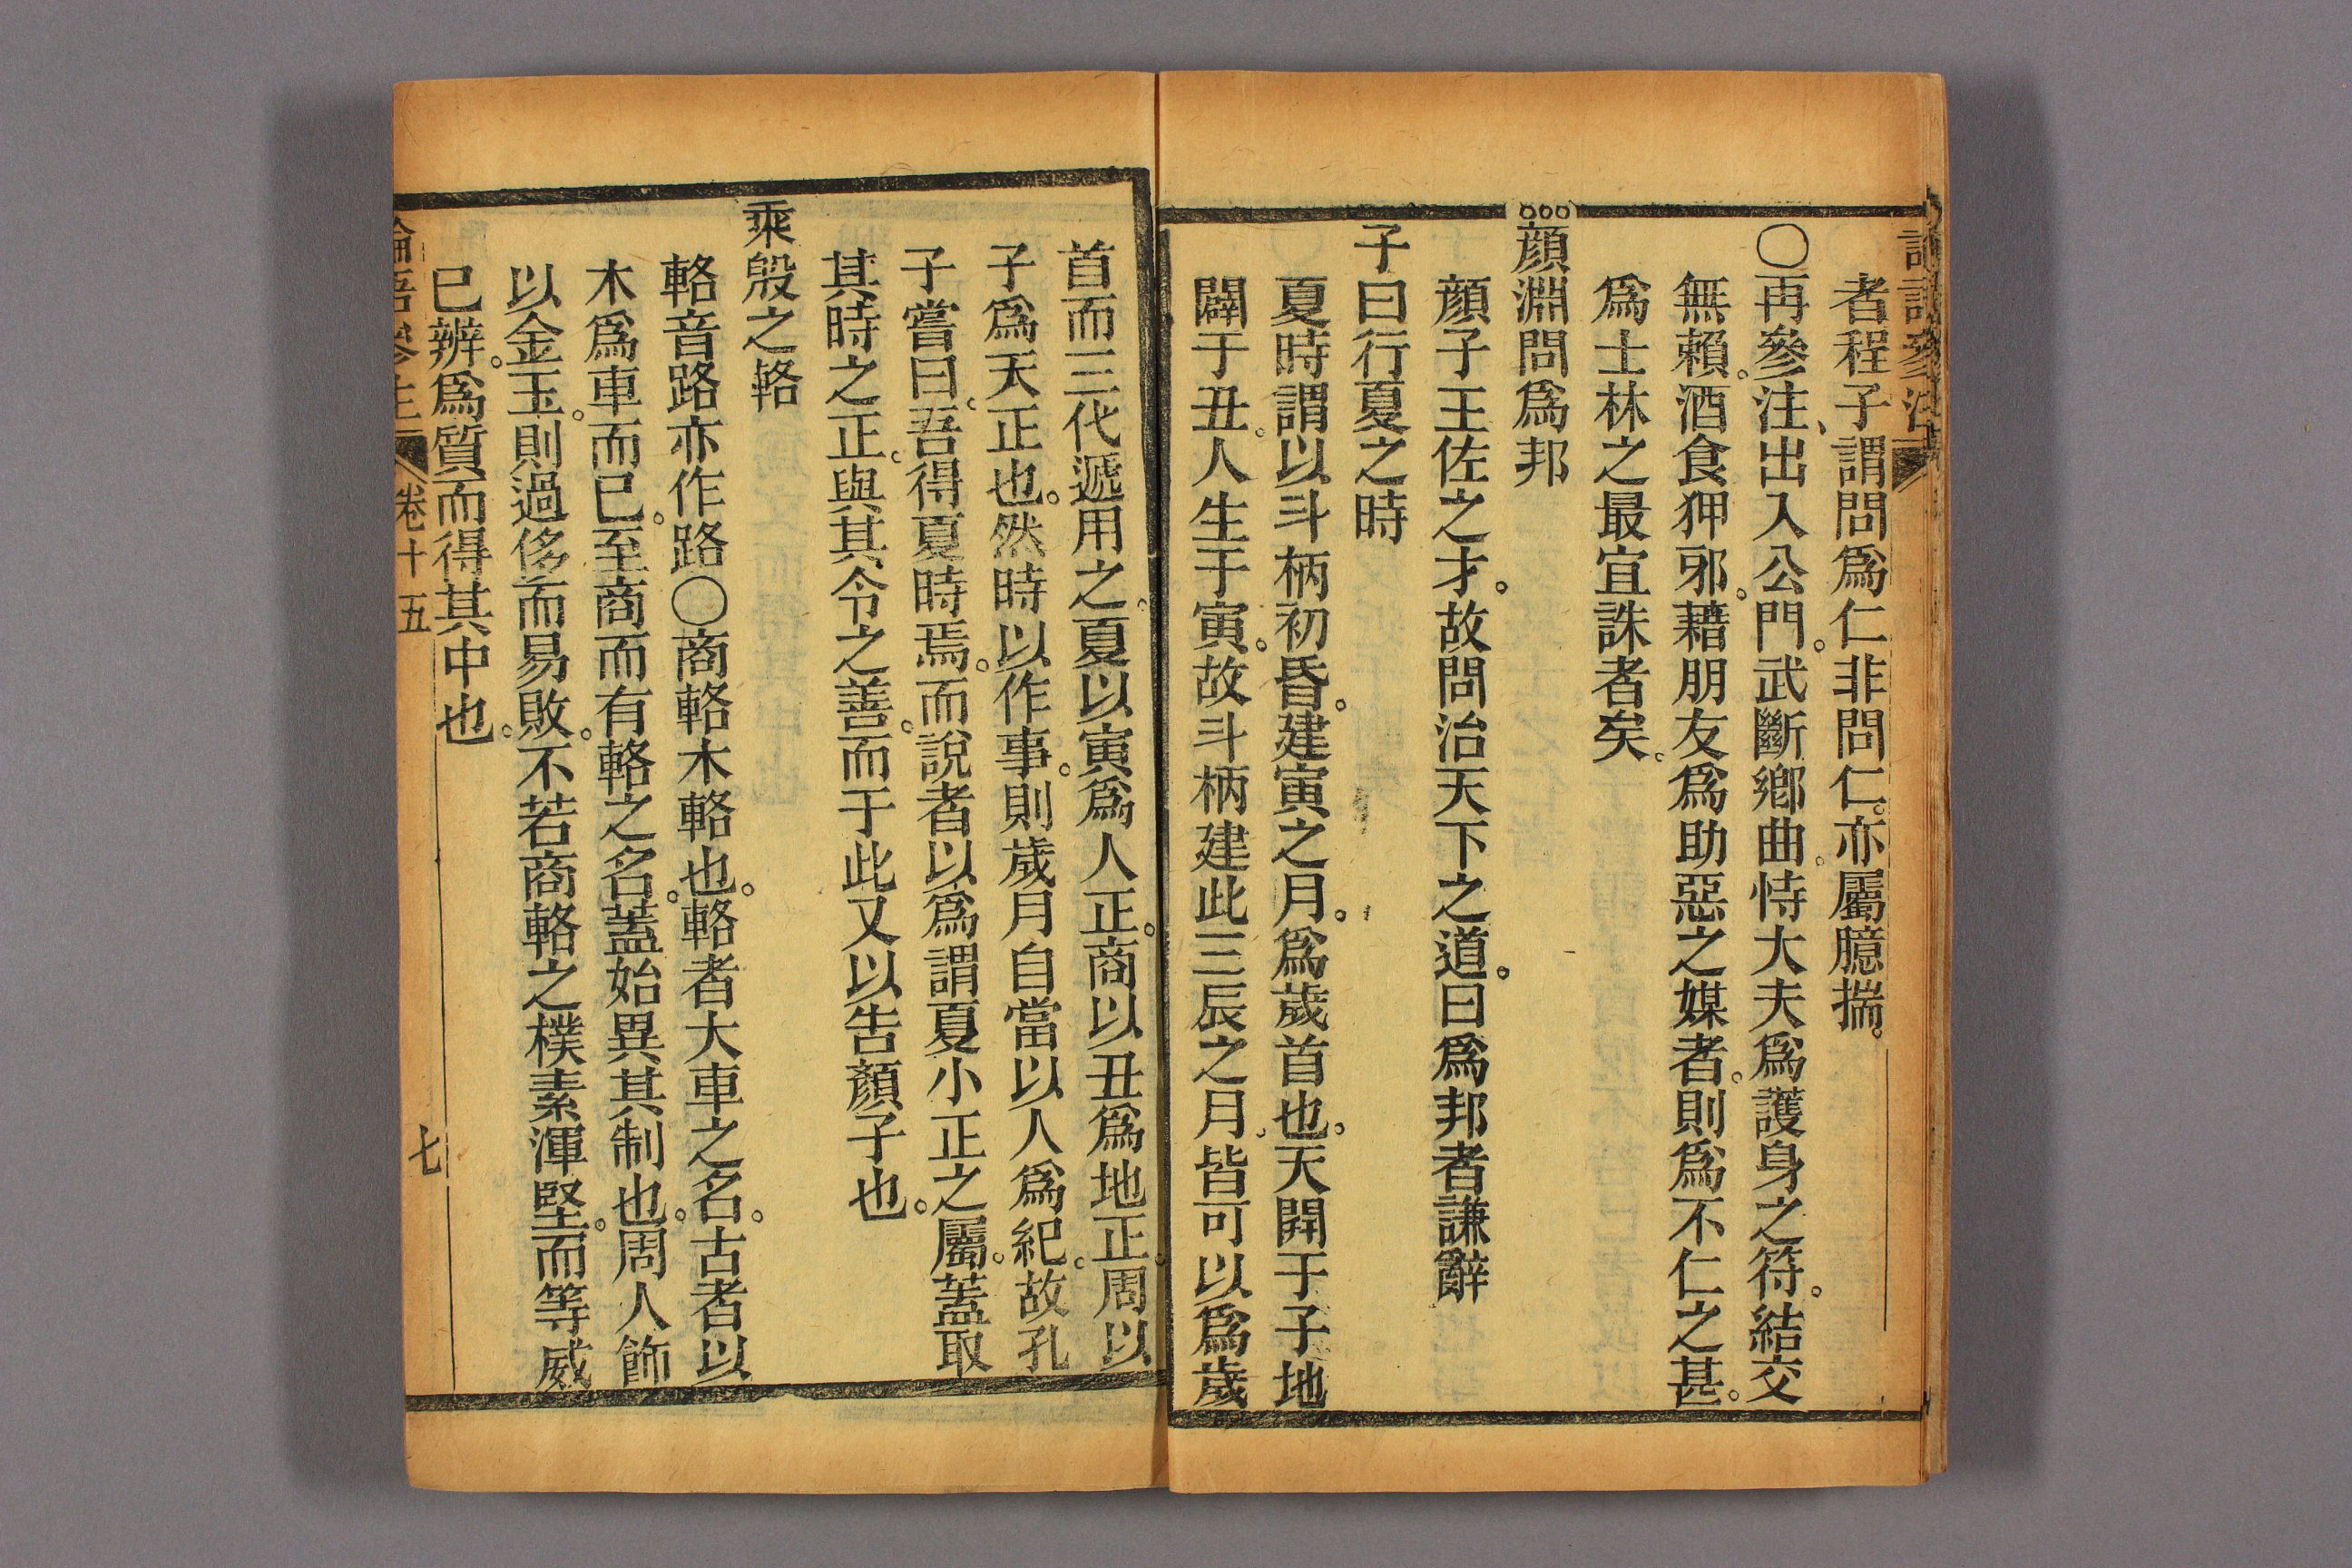 論語參注
者程子謂問爲仁非問仁。亦屬臆揣。
〇再參注、出入公門。武斷鄉曲。恃大夫爲護身之符。結交
無賴。酒食狎邪。藉朋友爲助惡之媒者。則爲不仁之甚。
爲士林之最宜誅者矣。
顏淵問爲邦
顏子王佐之才。故問治天下之道。曰爲邦者謙辭
子曰行夏之時
夏時謂以斗柄初昏。建寅之月。爲歲首也。天開于子地
闢于丑。人生于寅。故斗柄建此三辰之月。皆可以爲歲
首而三代遞用之。夏以寅爲人正。商以丑爲地正。周以
子爲天正也。然時以作事。則歲月自當以人爲紀。故孔
子嘗曰。吾得夏時焉。而說者以爲謂夏小正之屬。蓋取
其時之正。與其令之善。而于此又以告顏子也。
乘殷之輅
輅音路亦作路〇商輅木輅也。輅者大車之名。古者以
木爲車而已。至商而有輅之名。蓋始異其制也。周人飾
以金玉。則過侈而易敗。不若商輅之樸素渾堅。而等威
已辨。爲質而得其中也。
論語參注 卷十五 七